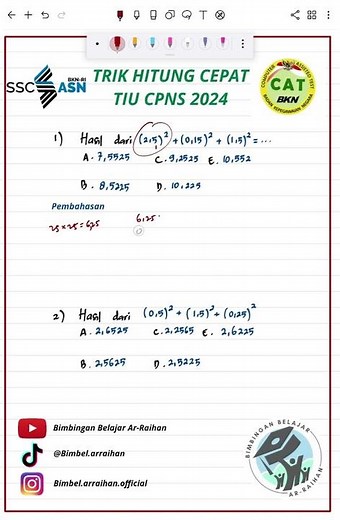 BKN-RI
SSC ASN
TRIK HITUNG CEPAT
TIU CPNS 2024
COMPUTER ASSISTED TEST
CAT
BKN
BADAN KEPEGAWAIAN NEGARA
1) Hasil dari (2,5)² + (0,15)² + (1,5)² = ...
A. 7,5525 C. 9,2525 E. 10,552
B. 8,5225 D. 10,225
Pembahasan
25 x 25 = 625 6,25
2) Hasil dari (0,5)² + (1,5)² + (0,25)²
A. 2,6525 C. 2,2565 E. 2,6225
B. 2,5625 D. 2,5225
Bimbingan Belajar Ar-Raihan
@Bimbel.arraihan
Bimbel.arraihan.official
BIMBINGAN BELAJAR
AR-RAIHAN